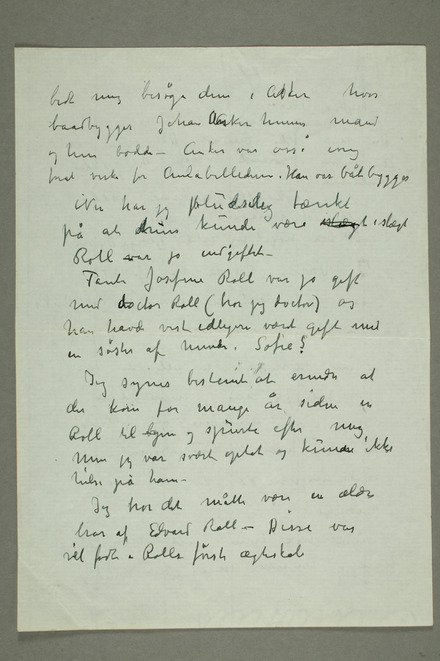 bedt mig besøge dem i Asker hos
baadbygger Johan Anker hennes mand
og hun bodde – Anker var også ivrig
for Aulabilledene. Han var båtbygger
Nu har jeg pludselig tænkt
på at deres kunde være i slægt
Roll var jo indgiftet –
Tante Josefine Roll var jo gift
med doctor Roll (tror jeg doctor) og
han havde vist tidligere vært gift med
en søster af hende. Sofie?
Jeg synes bestemt at erindre at
der kom for mange år siden en
Roll til byen og spurte efter mig
Men jeg var svært optat og kunde ikke
hilse på ham –
Jeg tror det måtte være en ældre
bror af Edvard Roll – Disse var
vel født i Rolls første ægteskab